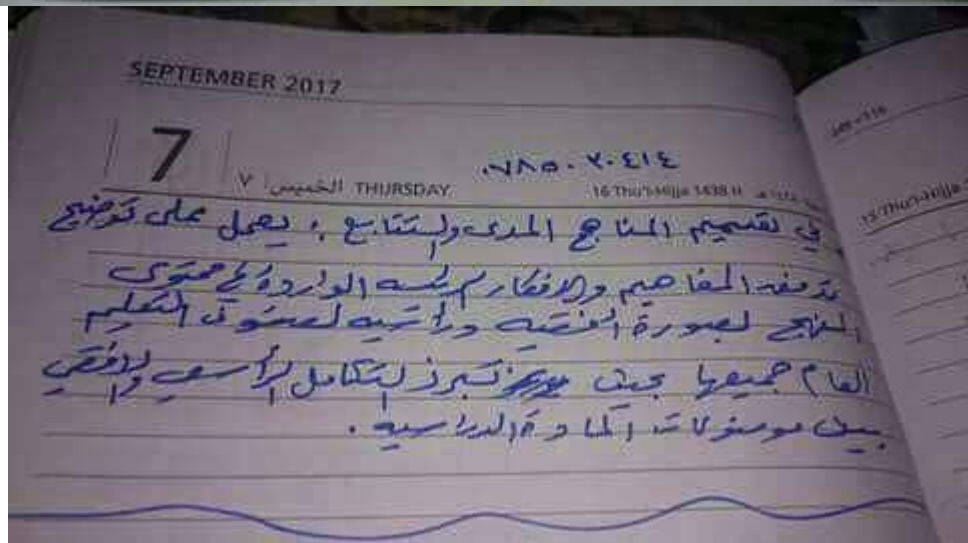 SEPTEMBER 2017
7
٠٧٨٥٠٢٠٤١٤
الخميس ٧ THURSDAY 16 Thu'l-Hijja 1438 H
في تصميم المناهج المدى والتتابع : يعمل على توضيح
تدفق المفاهيم والافكار الرئيسه الواردة في محتوى
المنهج بصورة افقيه ورأسيه لصفوف التعليم
العام جميعها بحيث تبرز التكامل الرأسي والافقي
بين موضوعات المادة الدراسيه .
15 Thu'l-Hijja